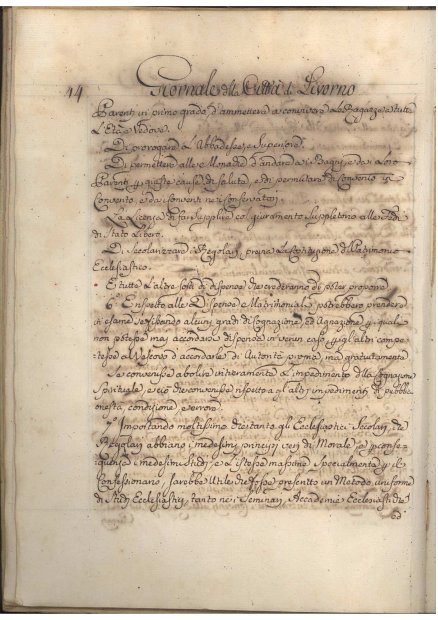 44 Giornale della Città di Livorno
Parenti in primo grado d'ammettere a convivere le Ragazze e tutte
L'Età, e Vedove.
Di prorogare le Abbadesse, e Superiore.
Di permettere alle Monache d'andare a i Bagni, e da i loro
Parenti p questa causa di salute, e di permutare di Convento in
Convento, e da i Conventi ne i Conservatorj.
La Licenza di far supplire col giuramento suppletorio alle Fedi
di Stato Libero.
Di Secolarizzare i Regolari, previa la Costituzione di Patrimonio
Ecclesiastico.
E tutte le altre sorti di dispense che crederanno di poter proporre
6.° Rispetto alle Dispense Matrimoniali potrebbero prendere
in esame se fissando alcuni gradi di Cognazione, ed Agnazione p i quali
non potesse mai accordarsi dispensa in verun caso, p gl'altri compe-
tesse a Vescovi d'accordarle di Autorità propria, ma gratuitamente
Se convenisse abolire intieramente l'impedimento della Cognazione
Spirituale, e ciò che convenisse rispetto a gl'altri impedimenti di pubblica
onestà, condizione, ed errore.
7.° Importando moltissimo che tanto gli Ecclesiastici Secolari, che
Regolari abbiano i medesimi principj veri di Morale, e p conse-
guenza i medesimi Studj, e le stesse massime specialmente p il
Confessionario, sarebbe utile che fosse prescritto un Metodo uniforme
di Studj Ecclesiastici, tanto ne i Seminarj, Accademie Ecclesiastiche
ed